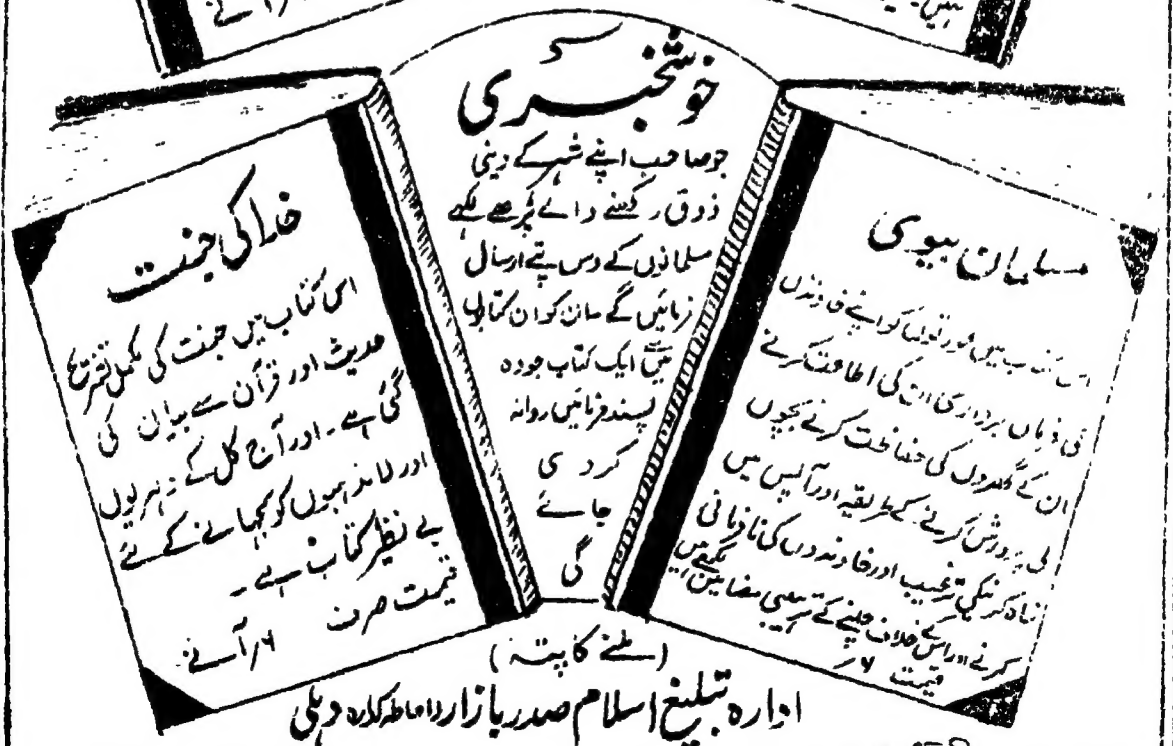 خوشخبری
جو صاحب اپنے شہر کے دینی
ذوق رکھنے والے پڑھے لکھے
مسلمانوں کے دس پتے ارسال
فرمائیں گے ان کو ان کتابوں
میں سے ایک کتاب جو وہ
پسند فرمائیں روانہ
کر دی
جائے
گی
مسلمان بیوی
اس کتاب میں عورتوں کو اپنے خاوندوں
کی فرماں برداری ان کی اطاعت کرنے
ان کے گھروں کی حفاظت کرنے بچوں
کی پرورش کرنے کے طریقہ اور آپس میں
کی ترغیب اور خاوندوں کی نافرمانی
کرنے اور اس کے خلاف چلنے کے مضامین لکھے ہیں
قیمت ۶؍
خدا کی جنت
اس کتاب میں جنت کی مکمل تشریح
حدیث اور قرآن سے بیان کی
گئی ہے۔ اور آج کل کے دہریوں
اور لامذہبوں کو سمجھانے کے لئے
بے نظیر کتاب ہے۔
قیمت صرف ۶؍ آنے
(ملنے کا پتہ)
ادارہ تبلیغ اسلام صدر بازار دہلی